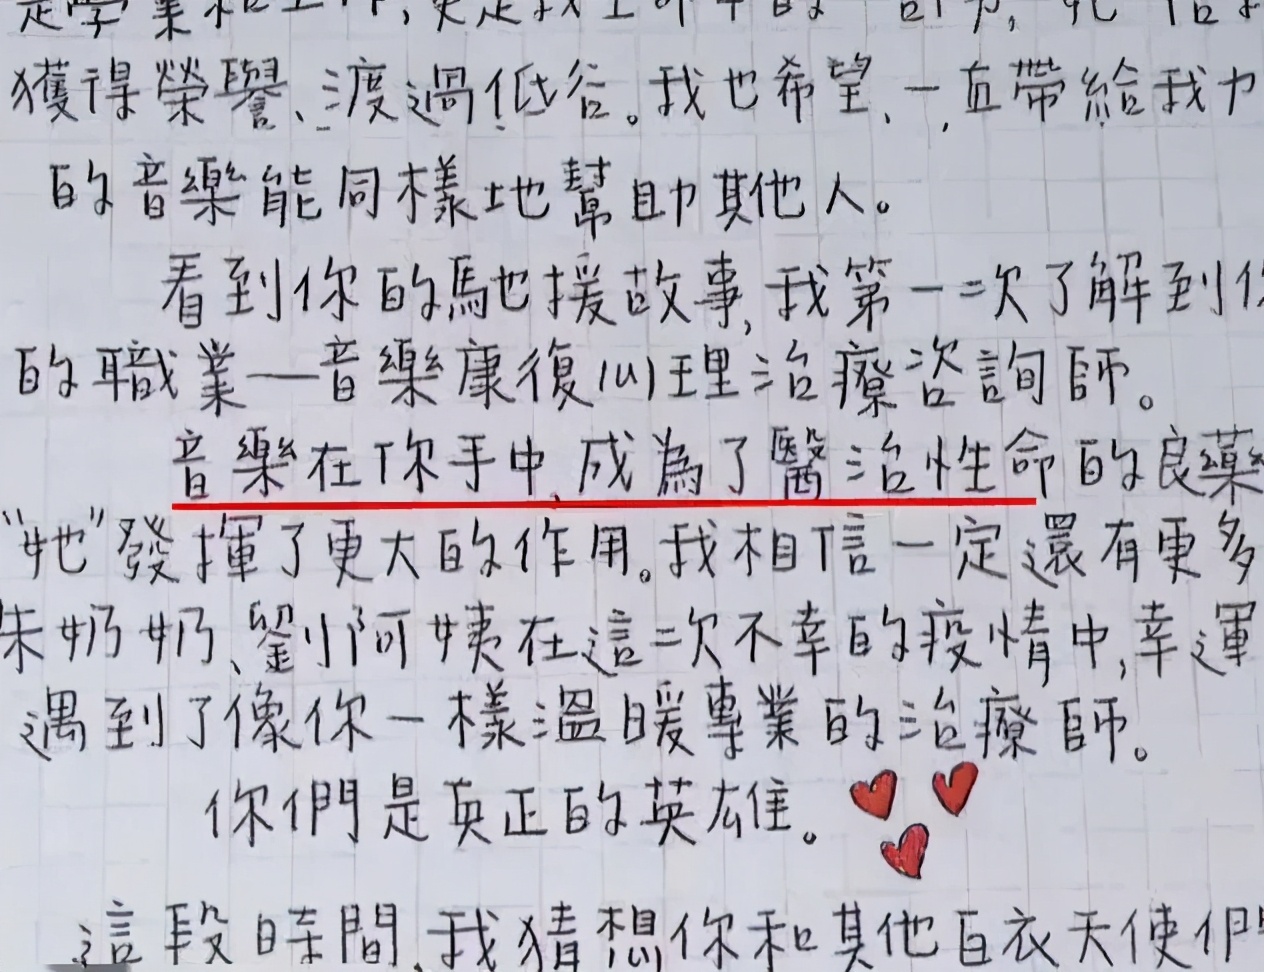 是學業和工作,更是我生命中的一部分,
獲得榮譽、渡過低谷。我也希望,一直帶給我力
的音樂能同樣地幫助其他人。
看到你的馳援故事,我第一次了解到你
的職業—音樂康復心理治療咨詢師。
音樂在你手中,成為了醫治性命的良藥
“牠”發揮了更大的作用。我相信一定還有更多
朱奶奶、劉阿姨在這次不幸的疫情中,幸運
遇到了像你一樣溫暖專業的治療師。
你們是真正的英雄。
這段時間,我猜想你和其他白衣天使們